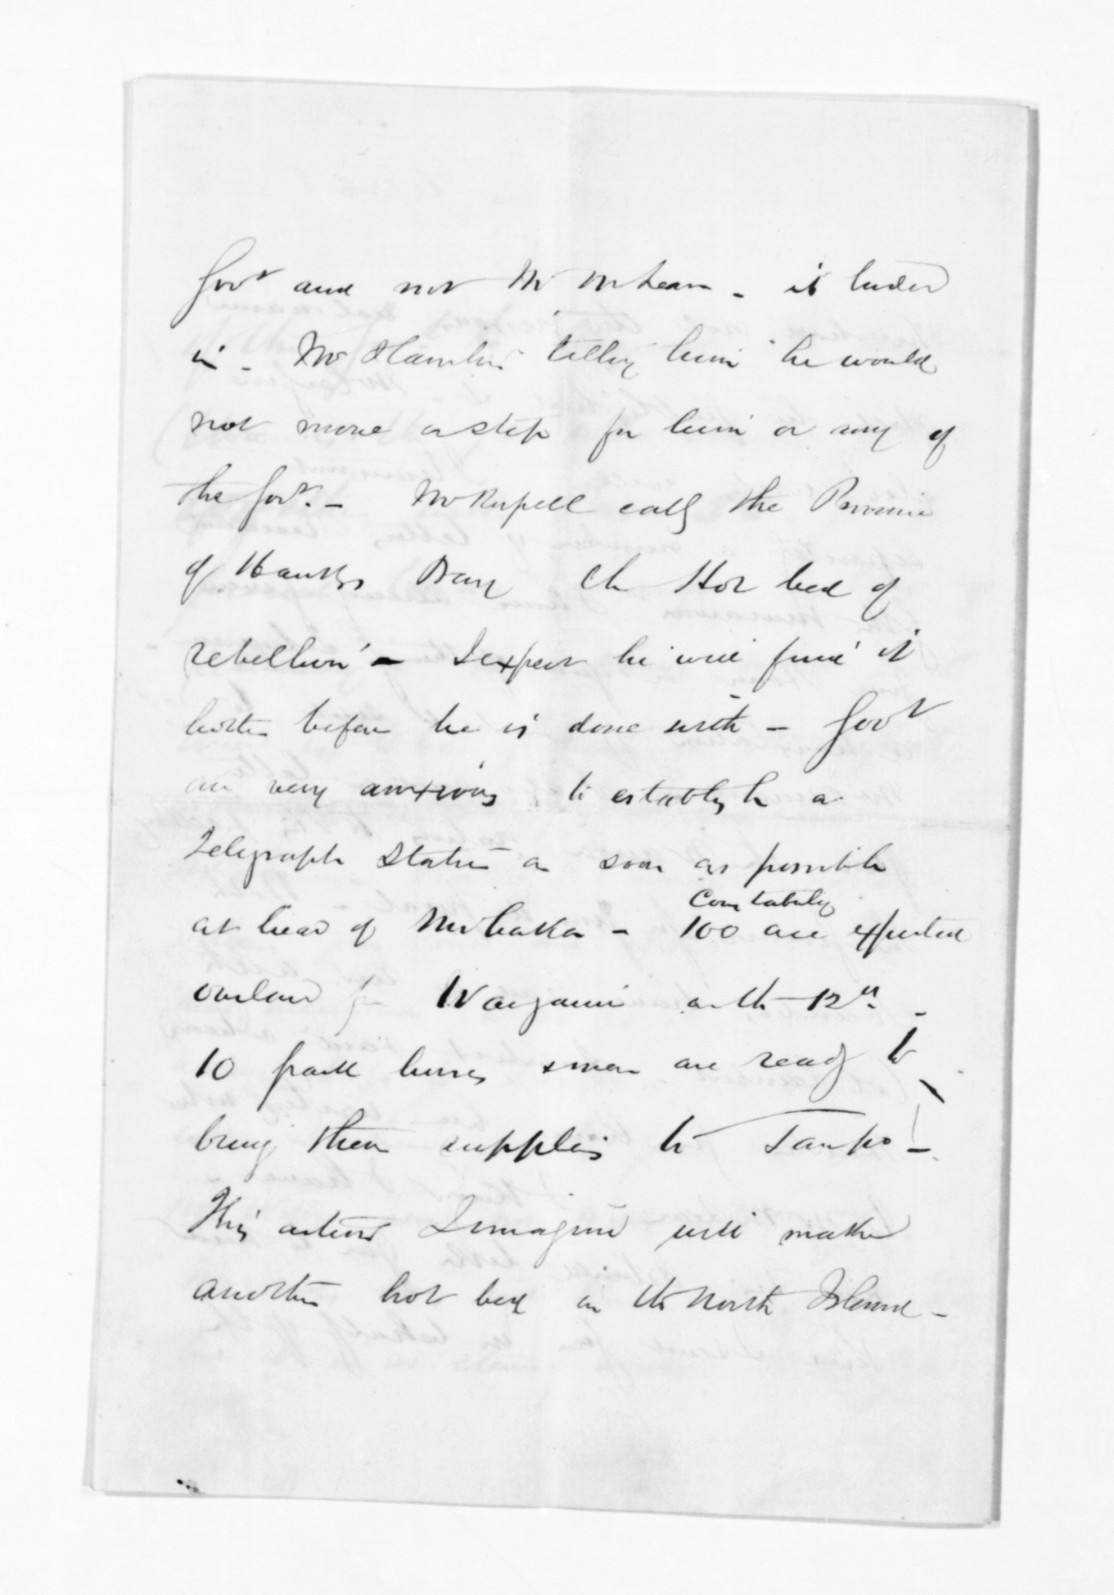 Govt and not Mr McLean - it ended
in - Mr Hamlin telling him he would
not move a step for him or any of
the Govt. - Mr Russell calls the Province
of Hawkes Bay the Hot bed of
rebellion' - I expect he will find it
hotter before he is done with - Govt
are very anxious to establish a
Telegraph Station as soon as possible
at head of Mohaka - 100 Constabulary are expected
overland from Wanganui on the 12th -
10 pack horses & men are ready to
bring them supplies to Taupo -
This action I imagine will make
another hot bed in the North Island -